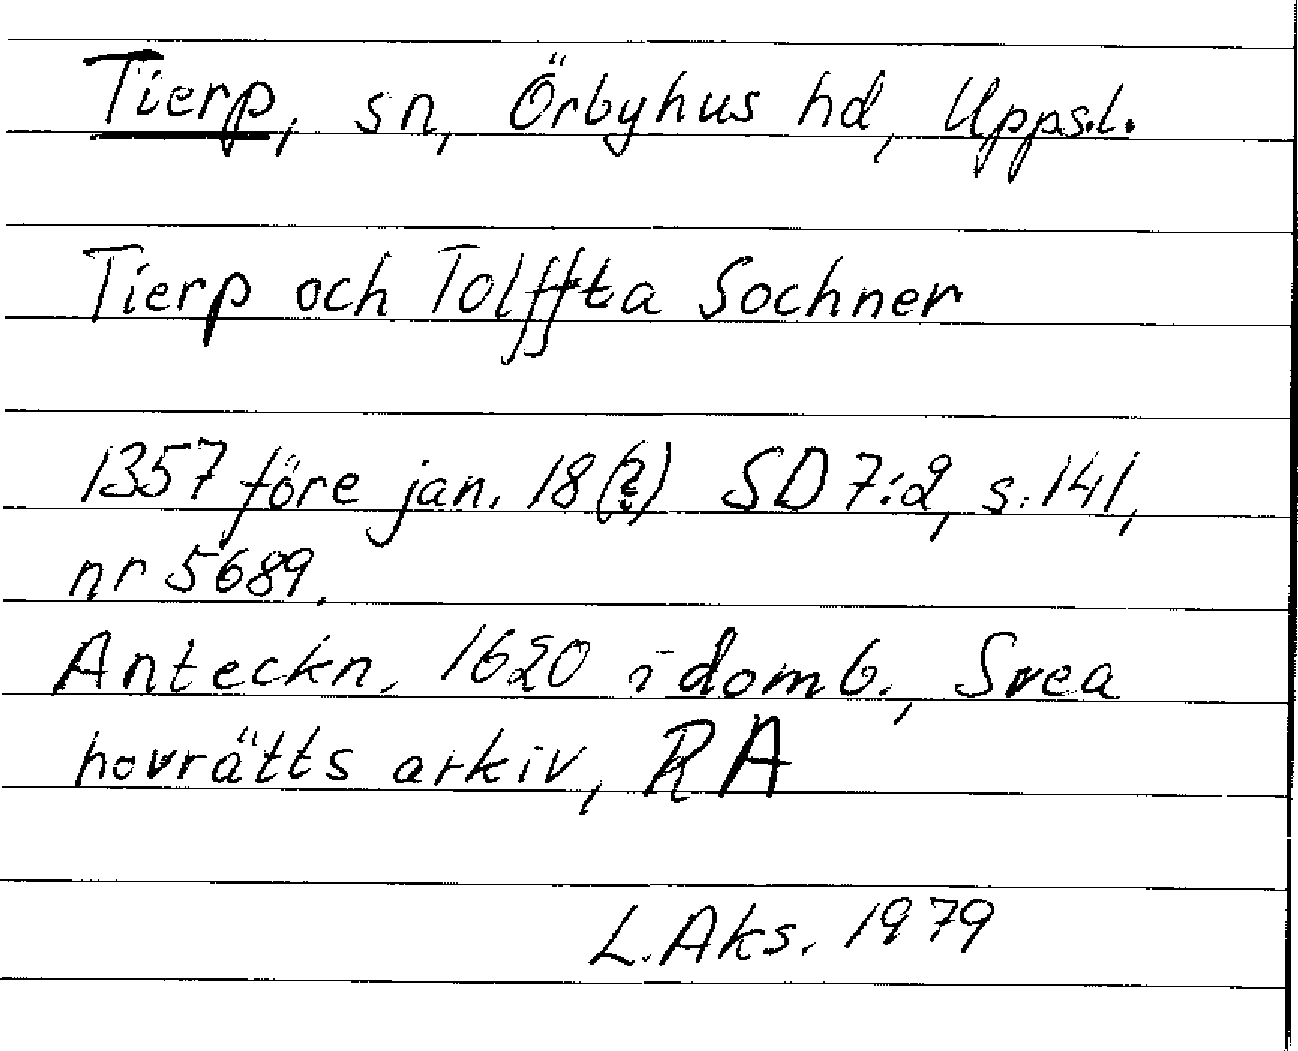 Tierp, sn, Örbyhus hd, Upps.l.
Tierp och Tolffta Sochner
1357 före jan. 18(?) SD 7:2, s. 141,
nr 5689.
Anteckn. 1620 i domb., Svea
hovrätts arkiv, RA
L. Aks. 1979